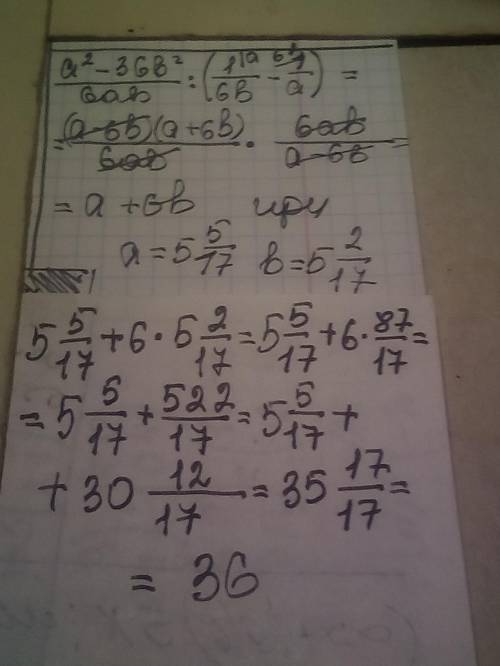 a² - 36b² / 6ab : (1\a / 6b - 6b\1 / a) =
= (a-6b)(a+6b) / 6ab · 6ab / a-6b =
= a + 6b при
a = 5 5/17 b = 5 2/17
5 5/17 + 6 · 5 2/17 = 5 5/17 + 6 · 87/17 =
= 5 5/17 + 522/17 = 5 5/17 +
+ 30 12/17 = 35 17/17 =
= 36